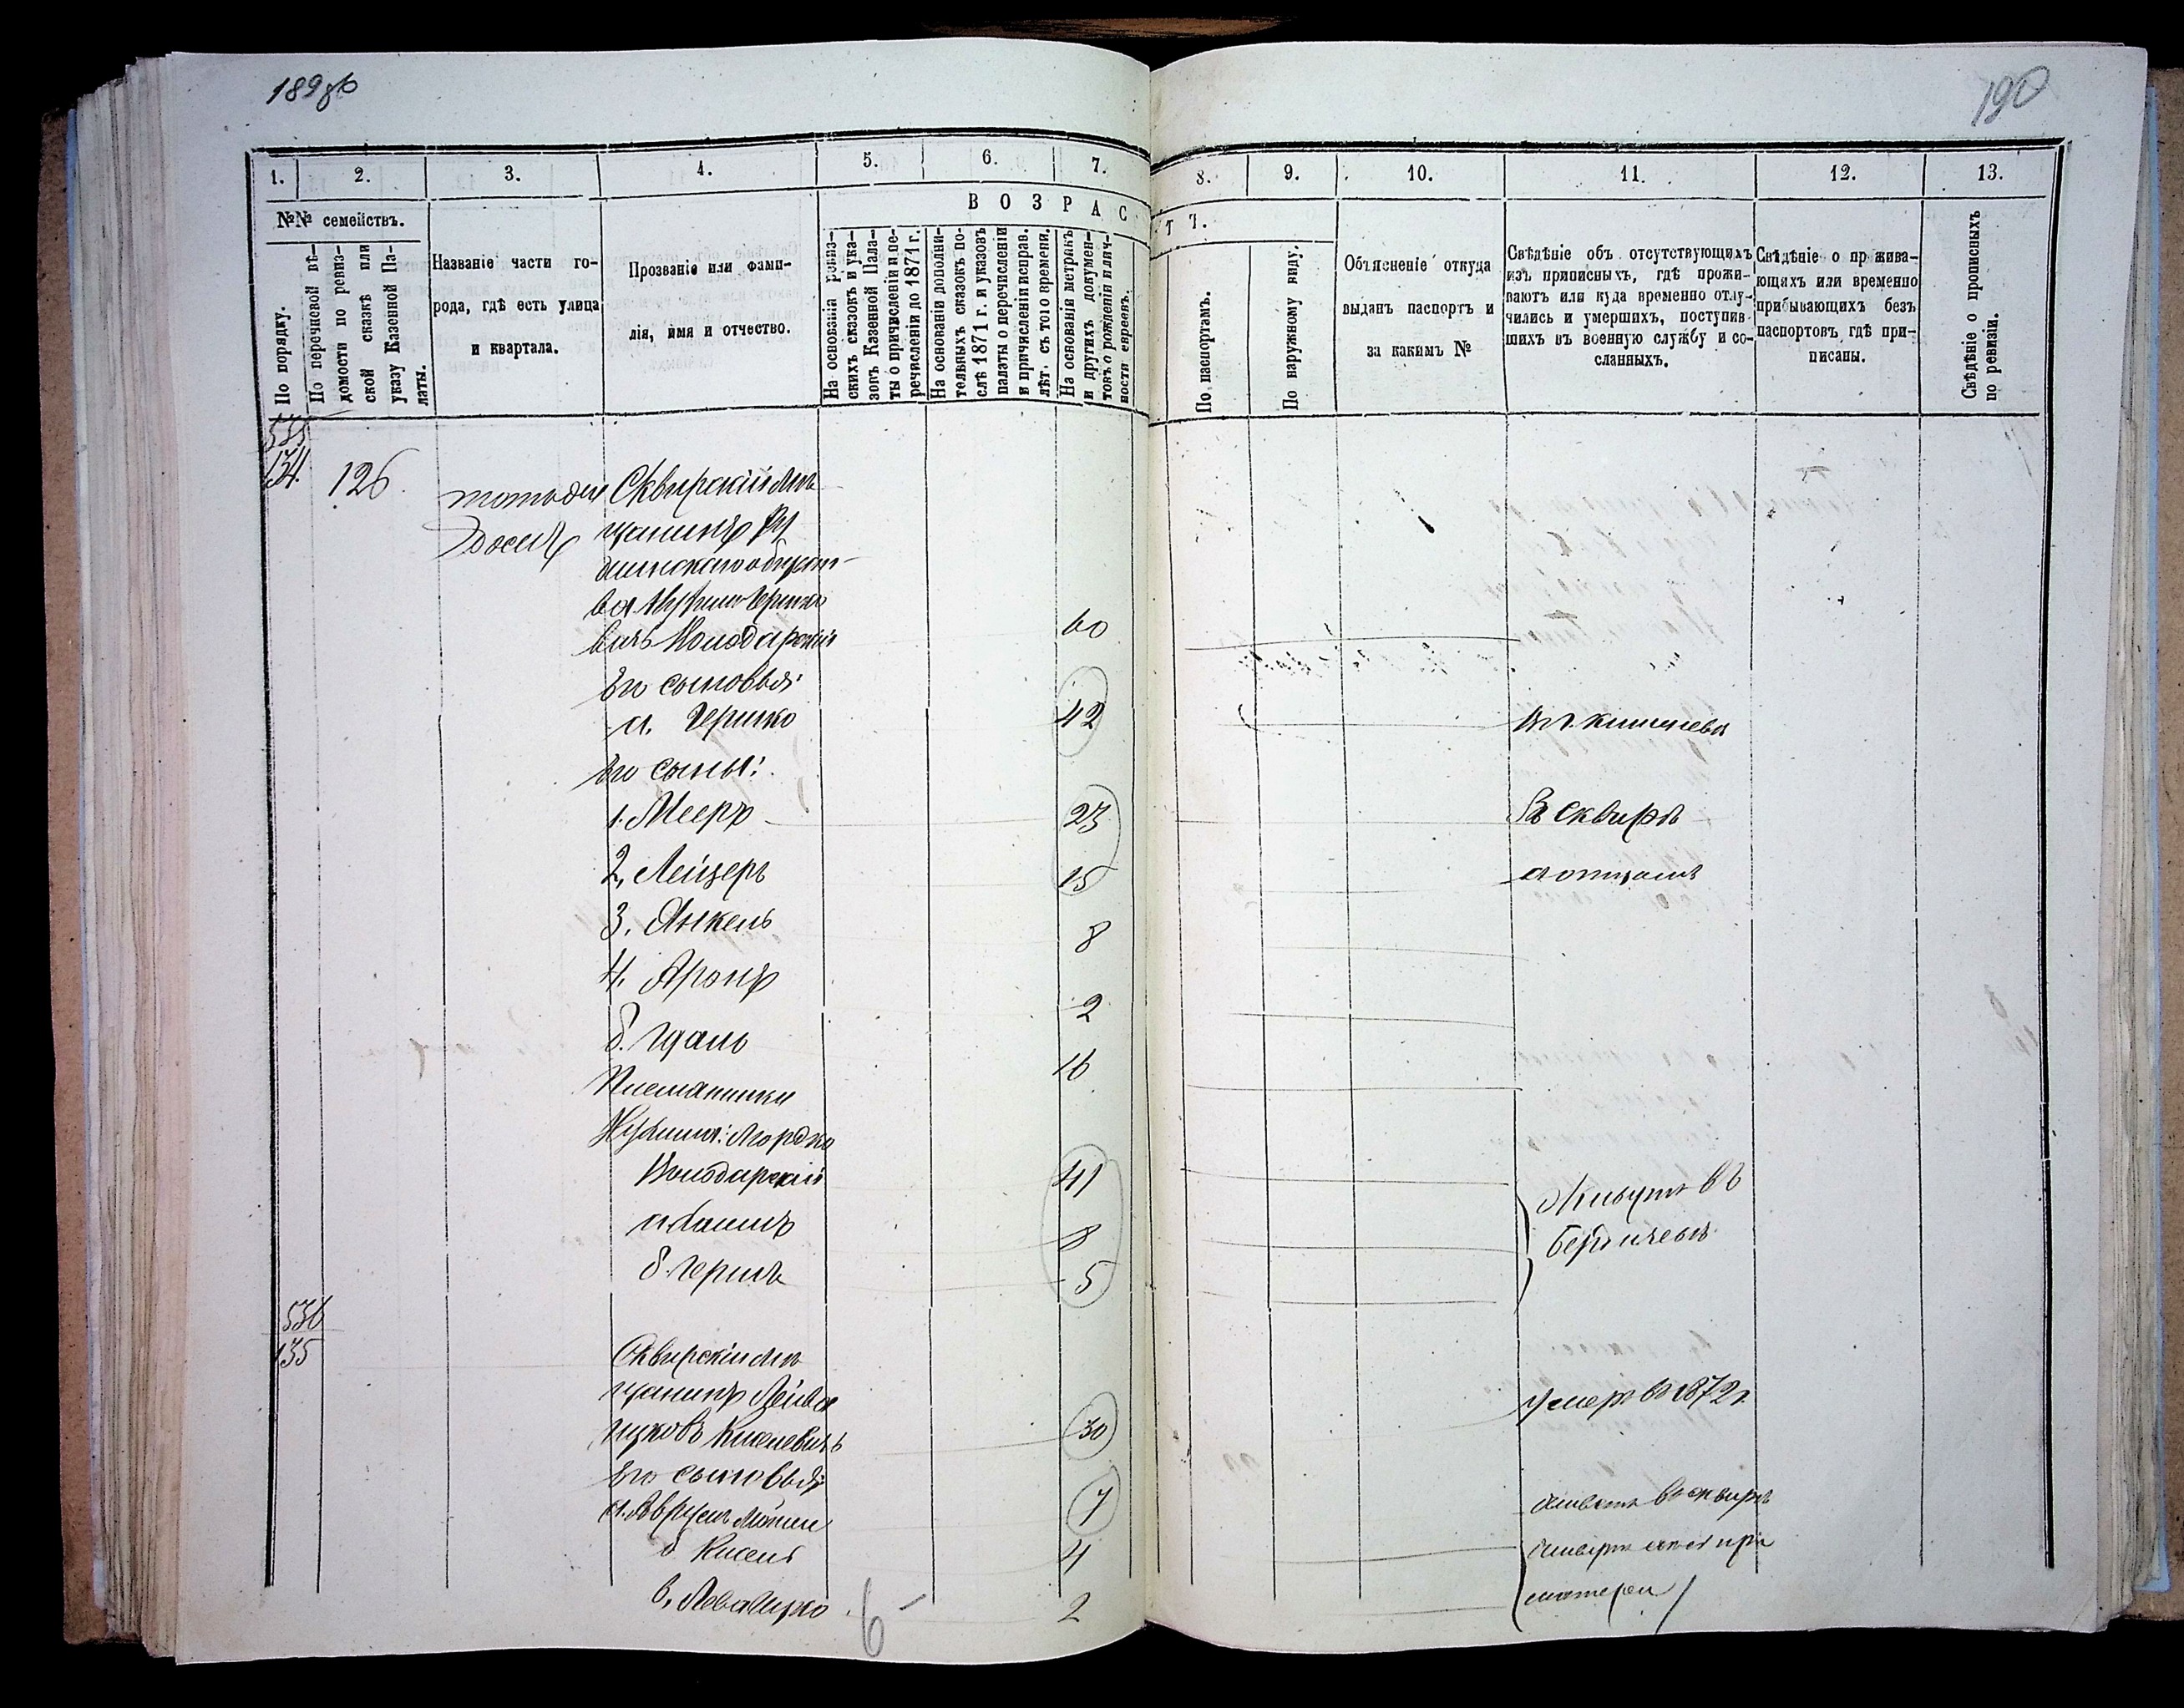 189 об
190
1.
2.
3.
4.
5.
6.
7.
8.
9.
10.
11.
12.
13.
№№ семействъ.
ВОЗРАС
ТЪ.
По порядку.
По перечневой вѣ-
домости по ревиз-
ской сказкѣ или
указу Казенной Па-
латы.
Названіе части го-
рода, гдѣ есть улица
и квартала.
Прозваніе или фами-
лія, имя и отчество.
На основаніи ревиз-
скихъ сказокъ и ука-
зовъ Казенной Пала-
ты о причисленіи и пе-
речисленіи до 1871 г.
На основаніи дополни-
тельныхъ сказокъ по-
слѣ 1871 г. и указовъ
палаты о перечисленіи
и причисленіи исправ.
лѣт. съ того времени.
На основаніи метрикъ
и другихъ докумен-
товъ о рожденіи и лич-
ности евреевъ.
По паспортамъ.
По наружному виду.
Объясненіе откуда
выданъ паспортъ и
за какимъ №
Свѣдѣніе объ отсутствующихъ
изъ приписныхъ, гдѣ прожи-
ваютъ или куда временно отлу-
чились и умершихъ, поступив-
шихъ въ военную службу и со-
сланныхъ.
Свѣдѣніе о прожива-
ющихъ или временно
прибывающихъ безъ
паспортовъ, гдѣ при-
писаны.
Свѣдѣніе о прописныхъ
по ревизіи.
535
134.
126.
Сквирскій мѣ
щанинъ
ва Гершко
вичъ Володарскій 60
Его сыновья:
а. Гершко 42
Его сыны:
1. Мееръ 23 Въ Сквирѣ
2, Лейзеръ 15
3. Янкель 8
4. Аронъ 2
б. 16
Племянники
Мордко
Володарскій 41 Живутъ въ
а. 8 Бердичевѣ
б. Гершъ 5
536
135
Сквирскій мѣ
щанинъ Лейба
Ицковъ Киселевичъ 30 умеръ въ 1872 г.
Его сыновья:
а. 7 въ Сквирѣ
б. Кисель 4 при
в. 2 матери
6